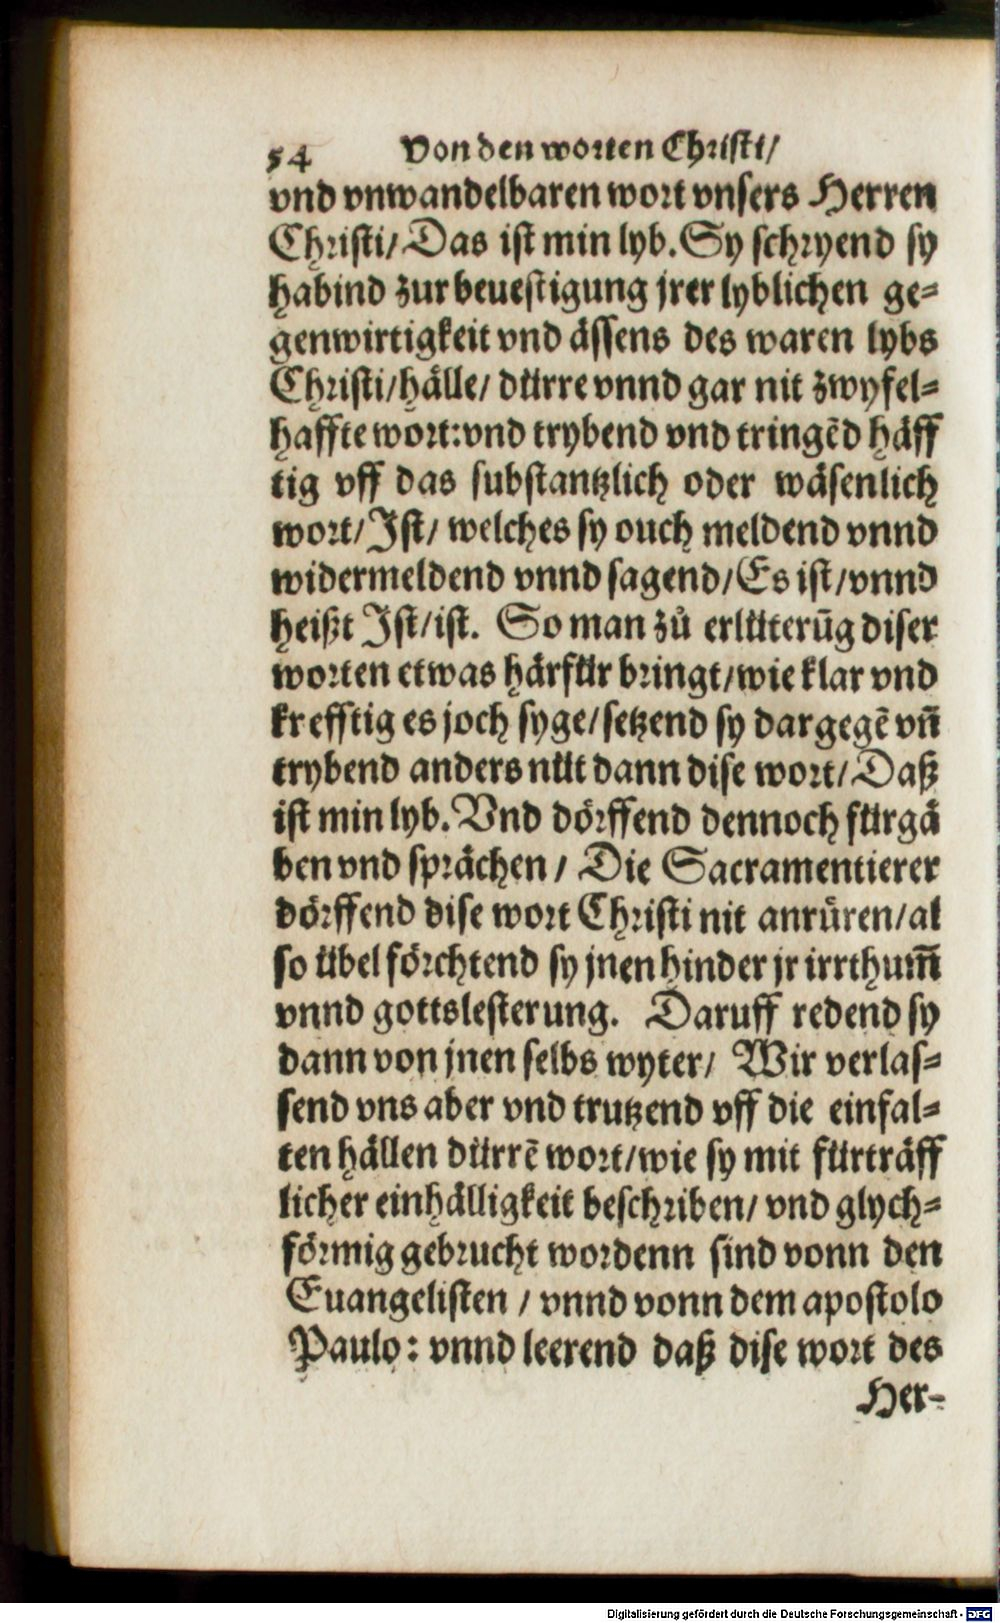 54 Von den worten Christi/
vnd vnwandelbaren wort vnsers Herren
Christi/Das ist min lyb. Sy schryend sy
habind zur beuestigung jrer lyblichen ge-
genwirtigkeit vnd ässens des waren lybs
Christi/hälle/ dürre vnnd gar nit zwyfel-
haffte wort: vnd trybend vnd tringẽd häff
tig vff das substantzlich oder wäsenlich
wort/Ist/ welches sy ouch meldend vnnd
widermeldend vnnd sagend/Es ist/vnnd
heißt Ist/ist. So man zů erlüterũg diser
worten etwas härfür bringt/wie klar vnd
krefftig es joch syge/setzend sy dargegẽ vñ
trybend anders nüt dann dise wort/Daß
ist min lyb. Vnd dörffend dennoch fürgä
ben vnd sprächen/ Die Sacramentierer
dörffend dise wort Christi nit anrüren/al
so übel förchtend sy jnen hinder jr irrthum̃
vnnd gottslesterung. Daruff redend sy
dann von jnen selbs wyter/ Wir verlas-
send vns aber vnd trutzend vff die einfal-
ten hällen dürrẽ wort/wie sy mit fürträff
licher einhälligkeit beschriben/ vnd glych-
förmig gebrucht wordenn sind vonn den
Euangelisten / vnnd vonn dem apostolo
Paulo: vnnd leerend daß dise wort des
Her-
Digitalisierung gefördert durch die Deutsche Forschungsgemeinschaft - DFG